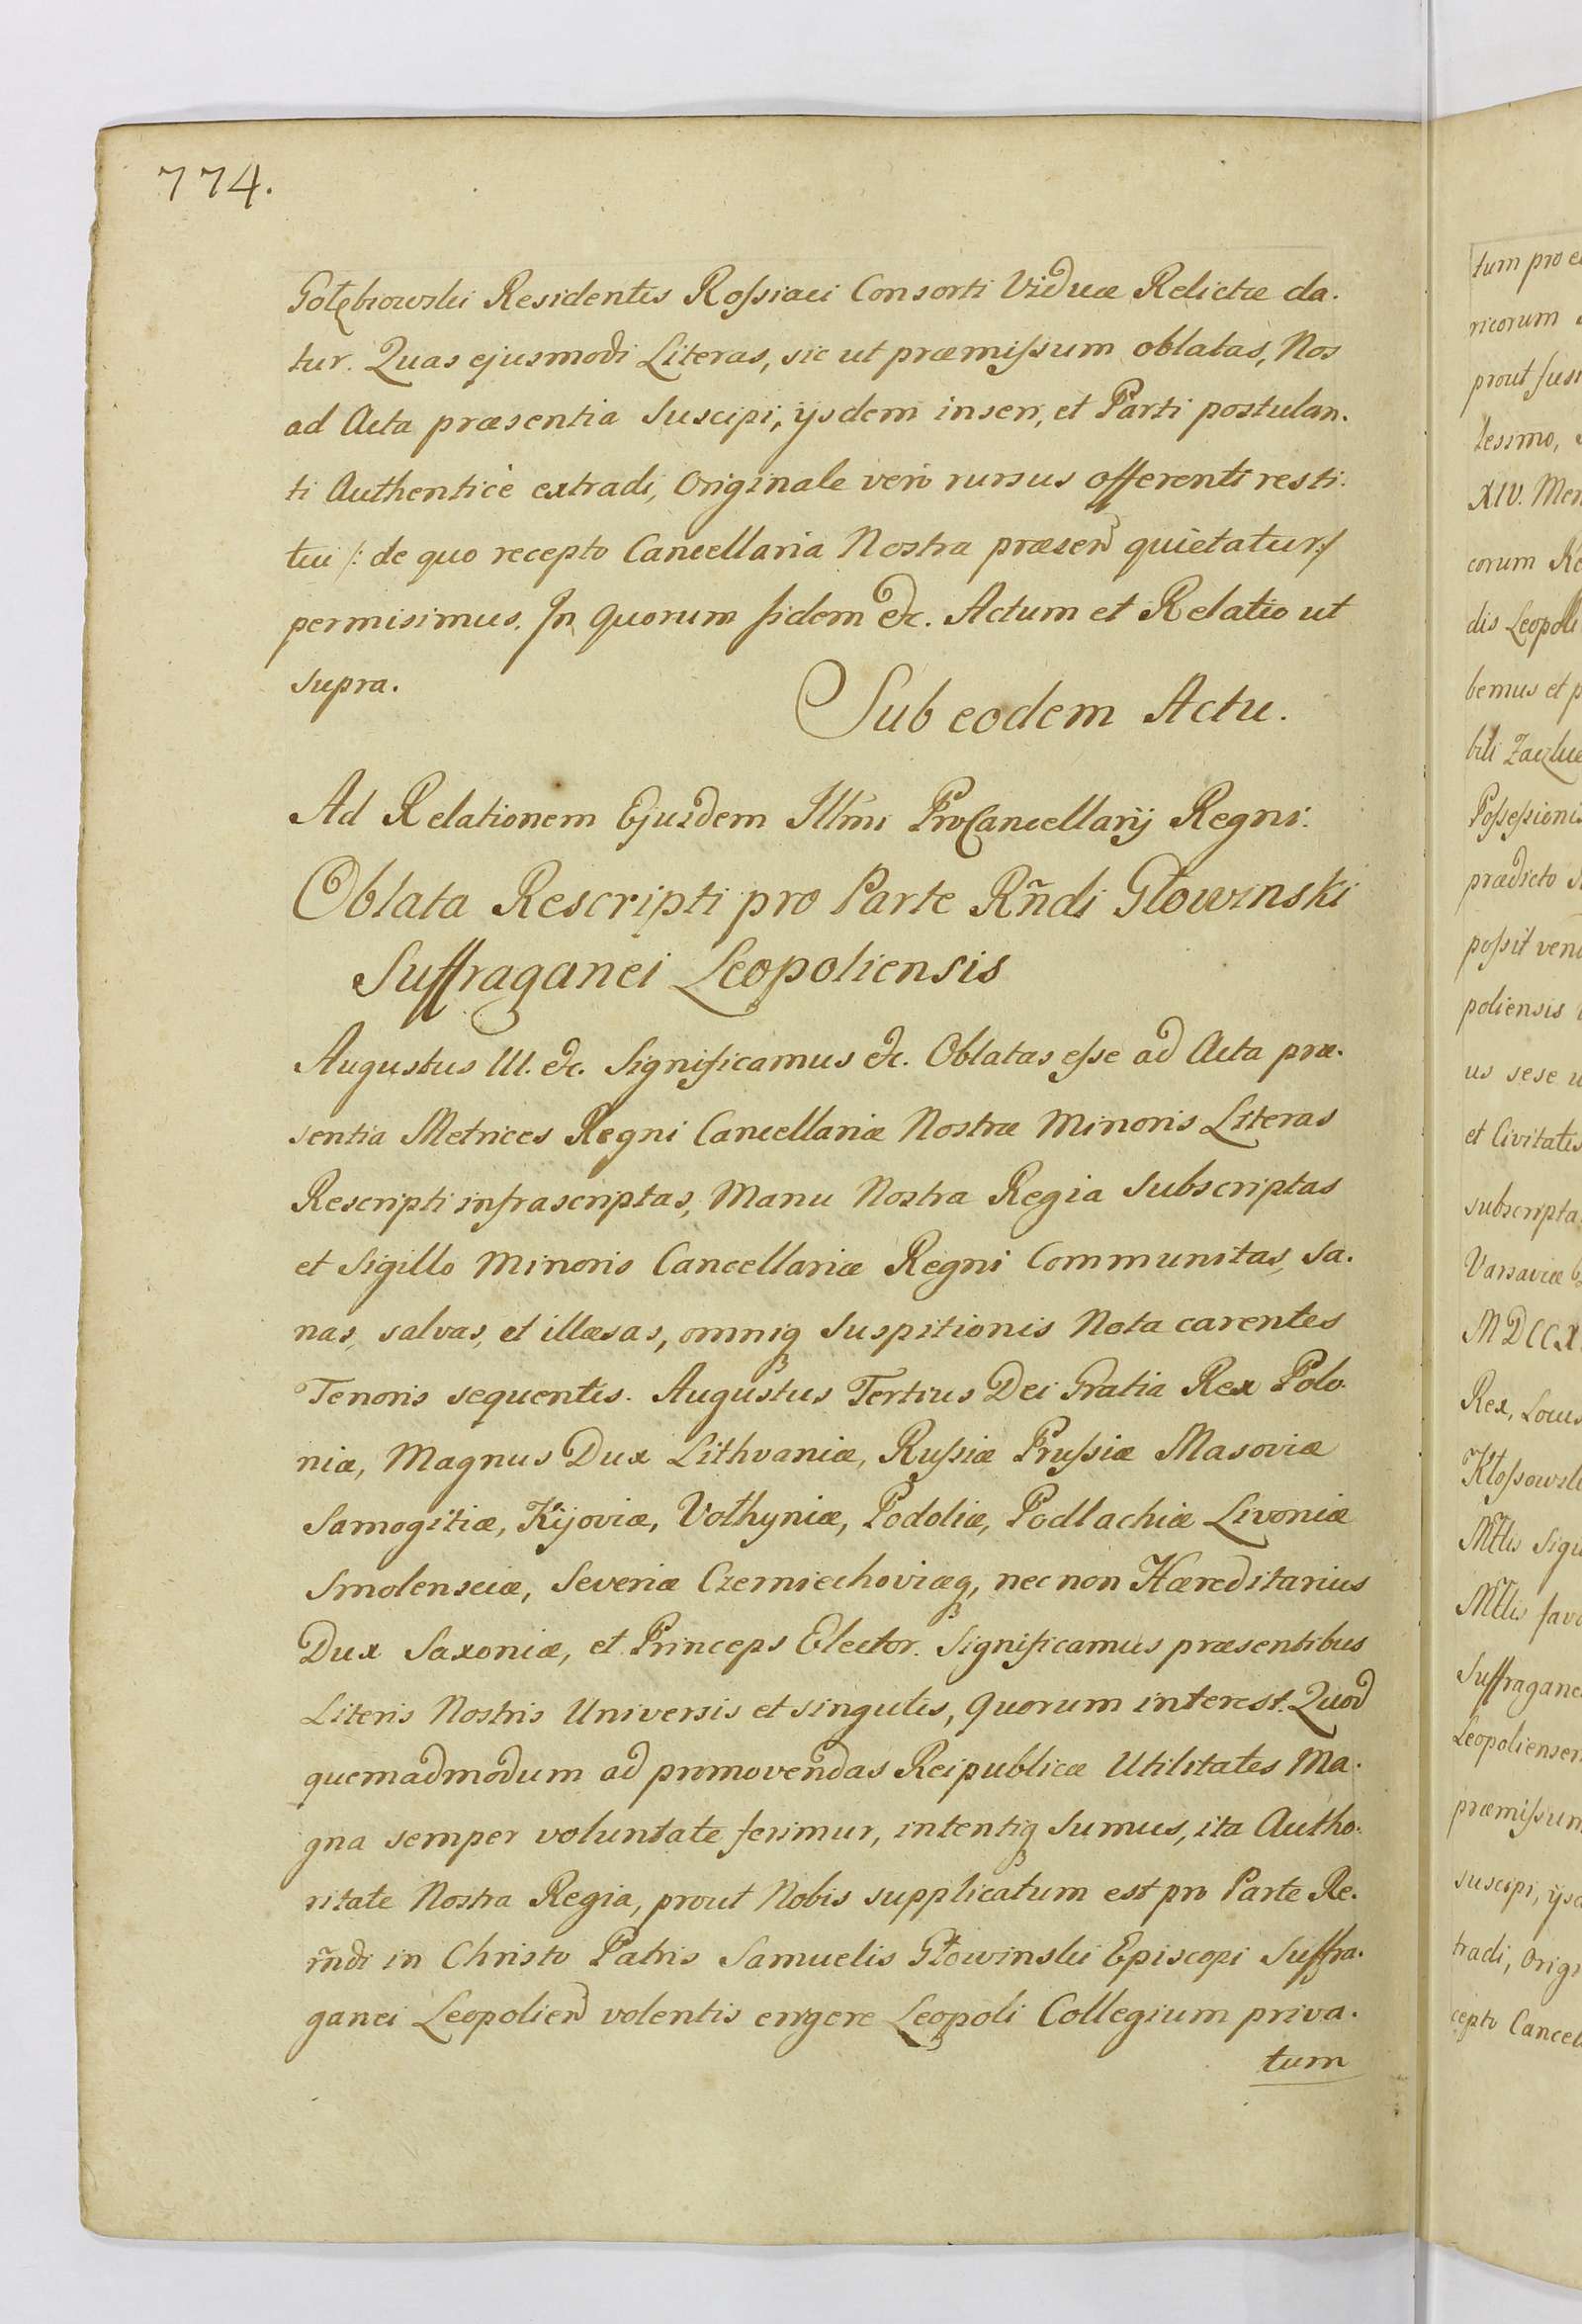 774.
Gołębrowski Residentis Roſsiaci Consorti Viduæ Relictæ da.
tur. Quas ejusmodi Literas, sic ut præmiſsum oblatas, Nos
ad Acta præsentia Suscipi, ijsdem inseri, et Parti postulan.
ti Authenticè extradi, Originale verò rursus offerenti resti.
tui /: de quo recepto Cancellaria Nostra præsen quietatur:/
permisimus. In Quorum fidem &c. Actum et Relatio ut
supra.
Sub eodem Actu.
Ad Relationem Ejusdem Illmi ProCancellarij Regni.
Oblata Rescripti pro Parte Rñdi Głowinski
Suffraganei Leopoliensis
Augustus III. &c. Significamus &c. Oblatas eſse ad Acta præ.
sentia Metrices Regni Cancellariæ Nostræ Minoris Literas
Rescripti infrascriptas, Manu Nostra Regia Subscriptas
et Sigillo Minoris Cancellariæ Regni Communitas, sa.
nas, salvas, et illæsas, omniq Suspitionis Nota carentes
Tenoris sequentis. Augustus Tertius Dei Gratia Rex Polo.
niæ, Magnus Dux Lithvaniæ, Ruſsiæ Pruſsiæ Masoviæ
Samogitiæ, Kijoviæ, Vołhyniæ, Podoliæ, Podlachiæ Livoniæ
Smolensciæ, Severiæ Czerniechoviæq, nec non Hæreditarius
Dux Saxoniæ, et Princeps Elector. Significamus præsentibus
Literis Nostris Universis et singulis, Quorum interest. Quod
quemadmodum ad promovendas Reipublicæ Utilitates Ma.
gna semper voluntate ferimur, intentiq Sumus, ita Autho.
ritate Nostra Regia, prout Nobis supplicatum est pro Parte Re.
rñdi in Christo Patris Samuelis Głowinski Episcopi Suffra.
ganei Leopolien volentis erigere Leopoli Collegium priva.
tum
tum pro
ricorum
prout
tesimo,
XIV.
eorum
dis Leopoli
bemus et
bili
Poſseſsionis
prædicto
poſsit
poliensis
us sese
et Civitatis
subscripta
Varsaviæ
MDCCX
Rex, Locus
Kłoſsowski
Mttis
Mttis
Suffragane
Leopoliensem
præmiſsum
suscipi,
tradi,
cepto Cancel